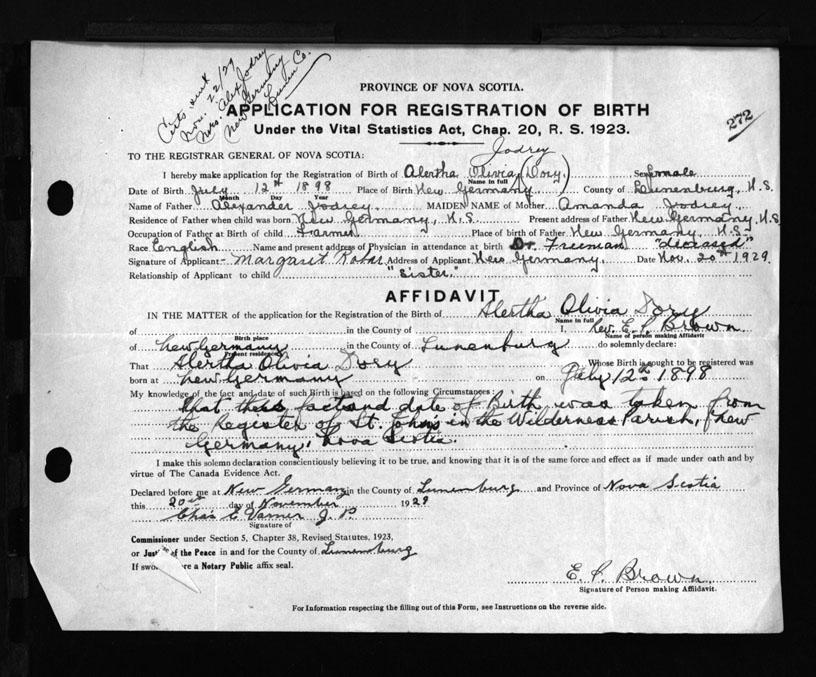 Certs sent
Nov. 22/29
Mrs. Alex Jodrey
New Germany
Lunen Co.
272
PROVINCE OF NOVA SCOTIA.
APPLICATION FOR REGISTRATION OF BIRTH
Under the Vital Statistics Act, Chap. 20, R. S. 1923.
Jodrey
TO THE REGISTRAR GENERAL OF NOVA SCOTIA:
I hereby make application for the Registration of Birth of Alertha Olivia (Dory.) Sex Female
Name in full
Date of Birth July 12th 1898 Place of Birth New Germany County of Lunenburg, N.S.
Month Day Year
Name of Father Alexander Jodrey. MAIDEN NAME of Mother Amanda Jodrey.
Residence of Father when child was born New Germany, N.S. Present address of Father New Germany, N.S.
Occupation of Father at Birth of child Farmer Place of birth of Father New Germany, N.S.
Race English Name and present address of Physician in attendance at birth Dr. Freeman "deceased"
Signature of Applicant Margaret Address of Applicant New Germany. Date Nov. 20th 1929
Relationship of Applicant to child "Sister."
AFFIDAVIT
IN THE MATTER of the application for the Registration of the Birth of Alertha Olivia Dory
Name in full
of in the County of I, Rev. E. P. Brown
Birth place Name of person making Affidavit
of New Germany in the County of Lunenburg do solemnly declare:
Present residence
That Alertha Olivia Dory Whose Birth is sought to be registered was
born at New Germany on July 12th 1898
My knowledge of the fact and date of such Birth is based on the following Circumstances:
That this fact and date of Birth was taken from
the Register of St. John's in the Wilderness Parish, New
Germany, Nova Scotia.
I make this solemn declaration conscientiously believing it to be true, and knowing that it is of the same force and effect as if made under oath and by
virtue of The Canada Evidence Act.
Declared before me at New Germany in the County of Lunenburg and Province of Nova Scotia
this 20th day of November 1929
Chas E Varner J. P.
Signature of
Commissioner under Section 5, Chapter 38, Revised Statutes, 1923,
or Jus of the Peace in and for the County of Lunenburg
If swo re a Notary Public affix seal.
E. P. Brown
Signature of Person making Affidavit.
For Information respecting the filling out of this Form, see Instructions on the reverse side.